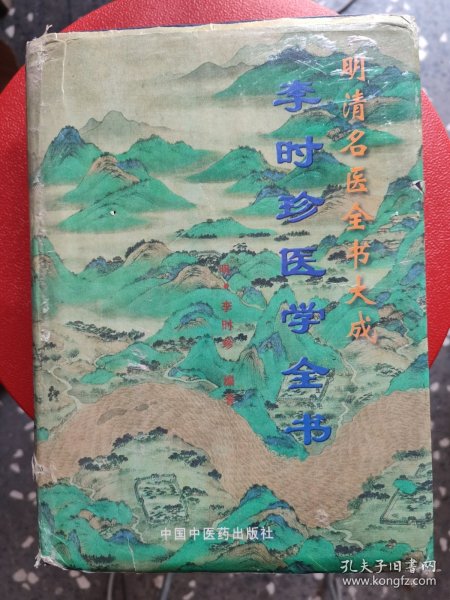 明清名医全书大成
李时珍医学全书
明·李时珍 编著
中国中医药出版社
孔夫子旧书网
www.kongfz.com